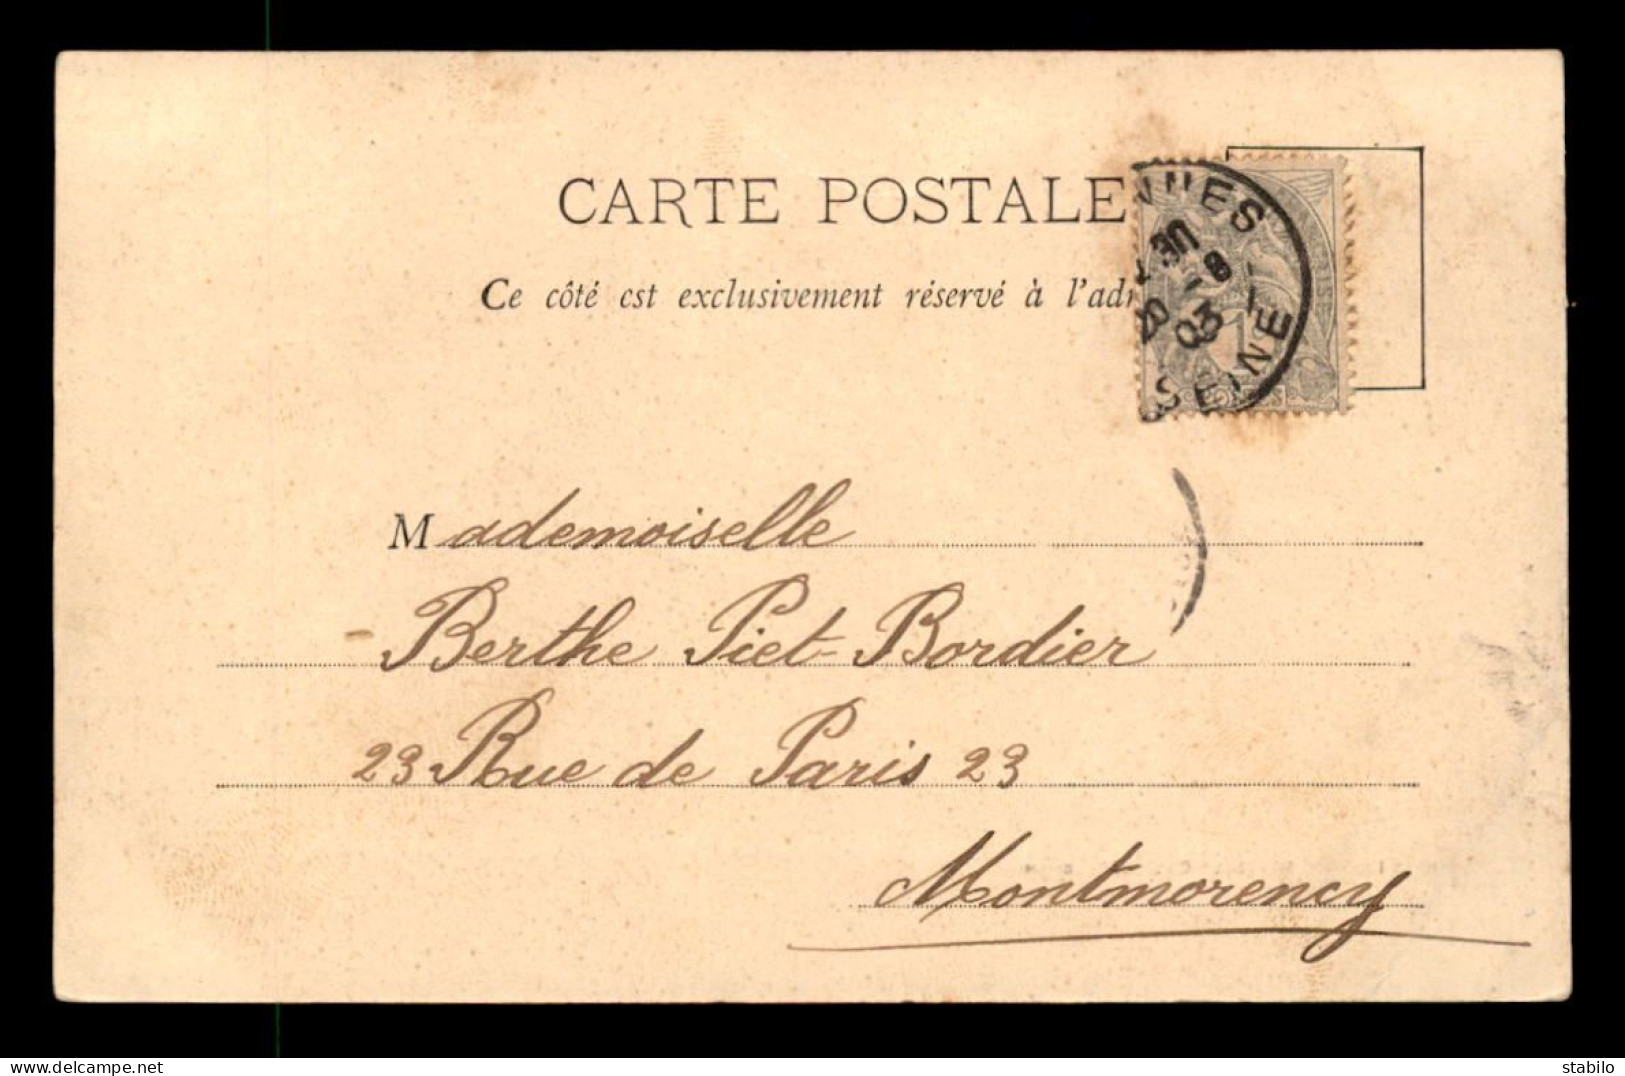 CARTE POSTALE
Ce côté est exclusivement réservé à l'adr
NNES
30
20 -8
03
SEINE
Mademoiselle
Berthe Piet-Bordier
23 Rue de Paris 23
Montmorency
delcampe.net
stabilo